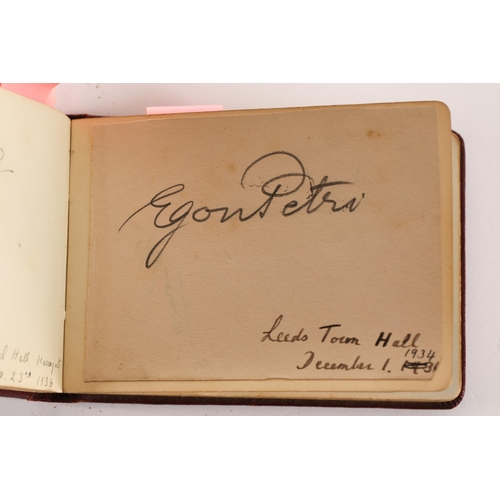 Hall Harrogate
23rd 1936
Egon Petri
Leeds Town Hall
1934
December 1.